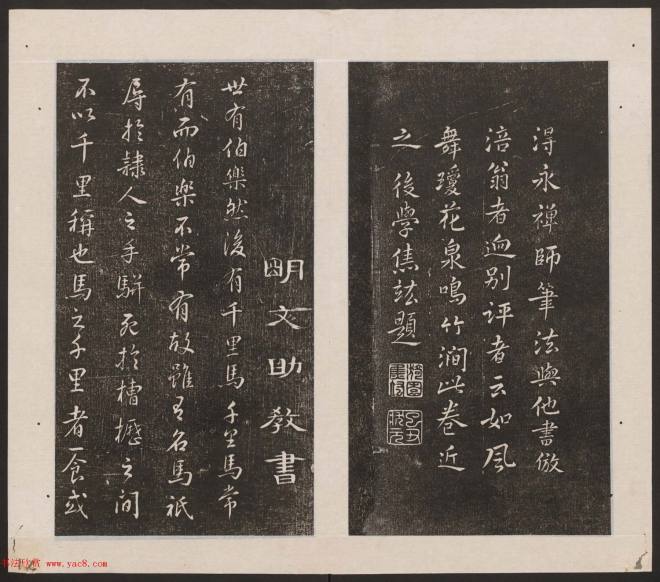 得永禪師筆法與他書倣
涪翁者逈別評者云如風
舞瓊花泉鳴竹澗此卷近
之後學焦竑題
明文助教書
世有伯樂然後有千里馬千里馬常
有而伯樂不常有故雖有名馬祇
辱於隸人之手駢死於槽櫪之間
不以千里稱也馬之千里者一食或
书法欣赏 www.yac8.com